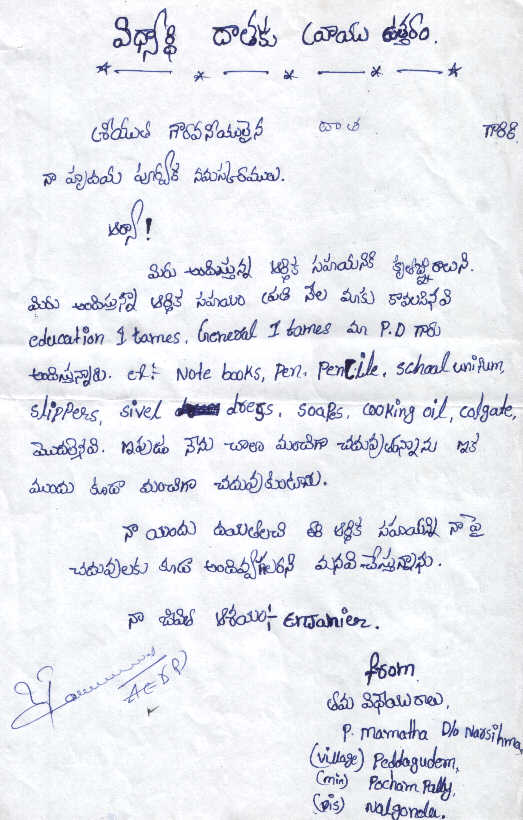 విద్యార్థి దాతకు వ్రాయు ఉత్తరం.
శ్రీయుత గౌరవనీయులైన దాత గారికి
నా హృదయ పూర్వక నమస్కారములు.
ఆర్యా!
మీరు అందిస్తున్న ఆర్థిక సహయనికి కృతజ్ఞురాలుని.
మీరు అందిస్తున్న ఆర్థిక సహయం ప్రతి నేల మాకు కావలసినవి
education I tames, General I tames మా P.D గారు
అందిస్తున్నారు. Note books, Pen, Pencile, school unifum,
slippers, sivel dregs, soaps, cooking oil, colgate,
మొదలైనవి. ఇపుడు నేను చాలా మంచిగా చదువుతున్నాను ఇక
ముందు కూడా మంచిగా చదువుకుంటాను.
నా యందు దయతలచి ఈ ఆర్థిక సహయన్ని నా పై
చదువులకు కూడా అందివ్వగలరని మనవి చేస్తున్నాను.
నా జీవిత ఆశయం:-
from
తమ విధేయురాలు,
P. Mamatha D/o Narsihma,
(village) Peddagudem,
(min) Pocham Pally,
(Dis) Nalgonda.
AEDP